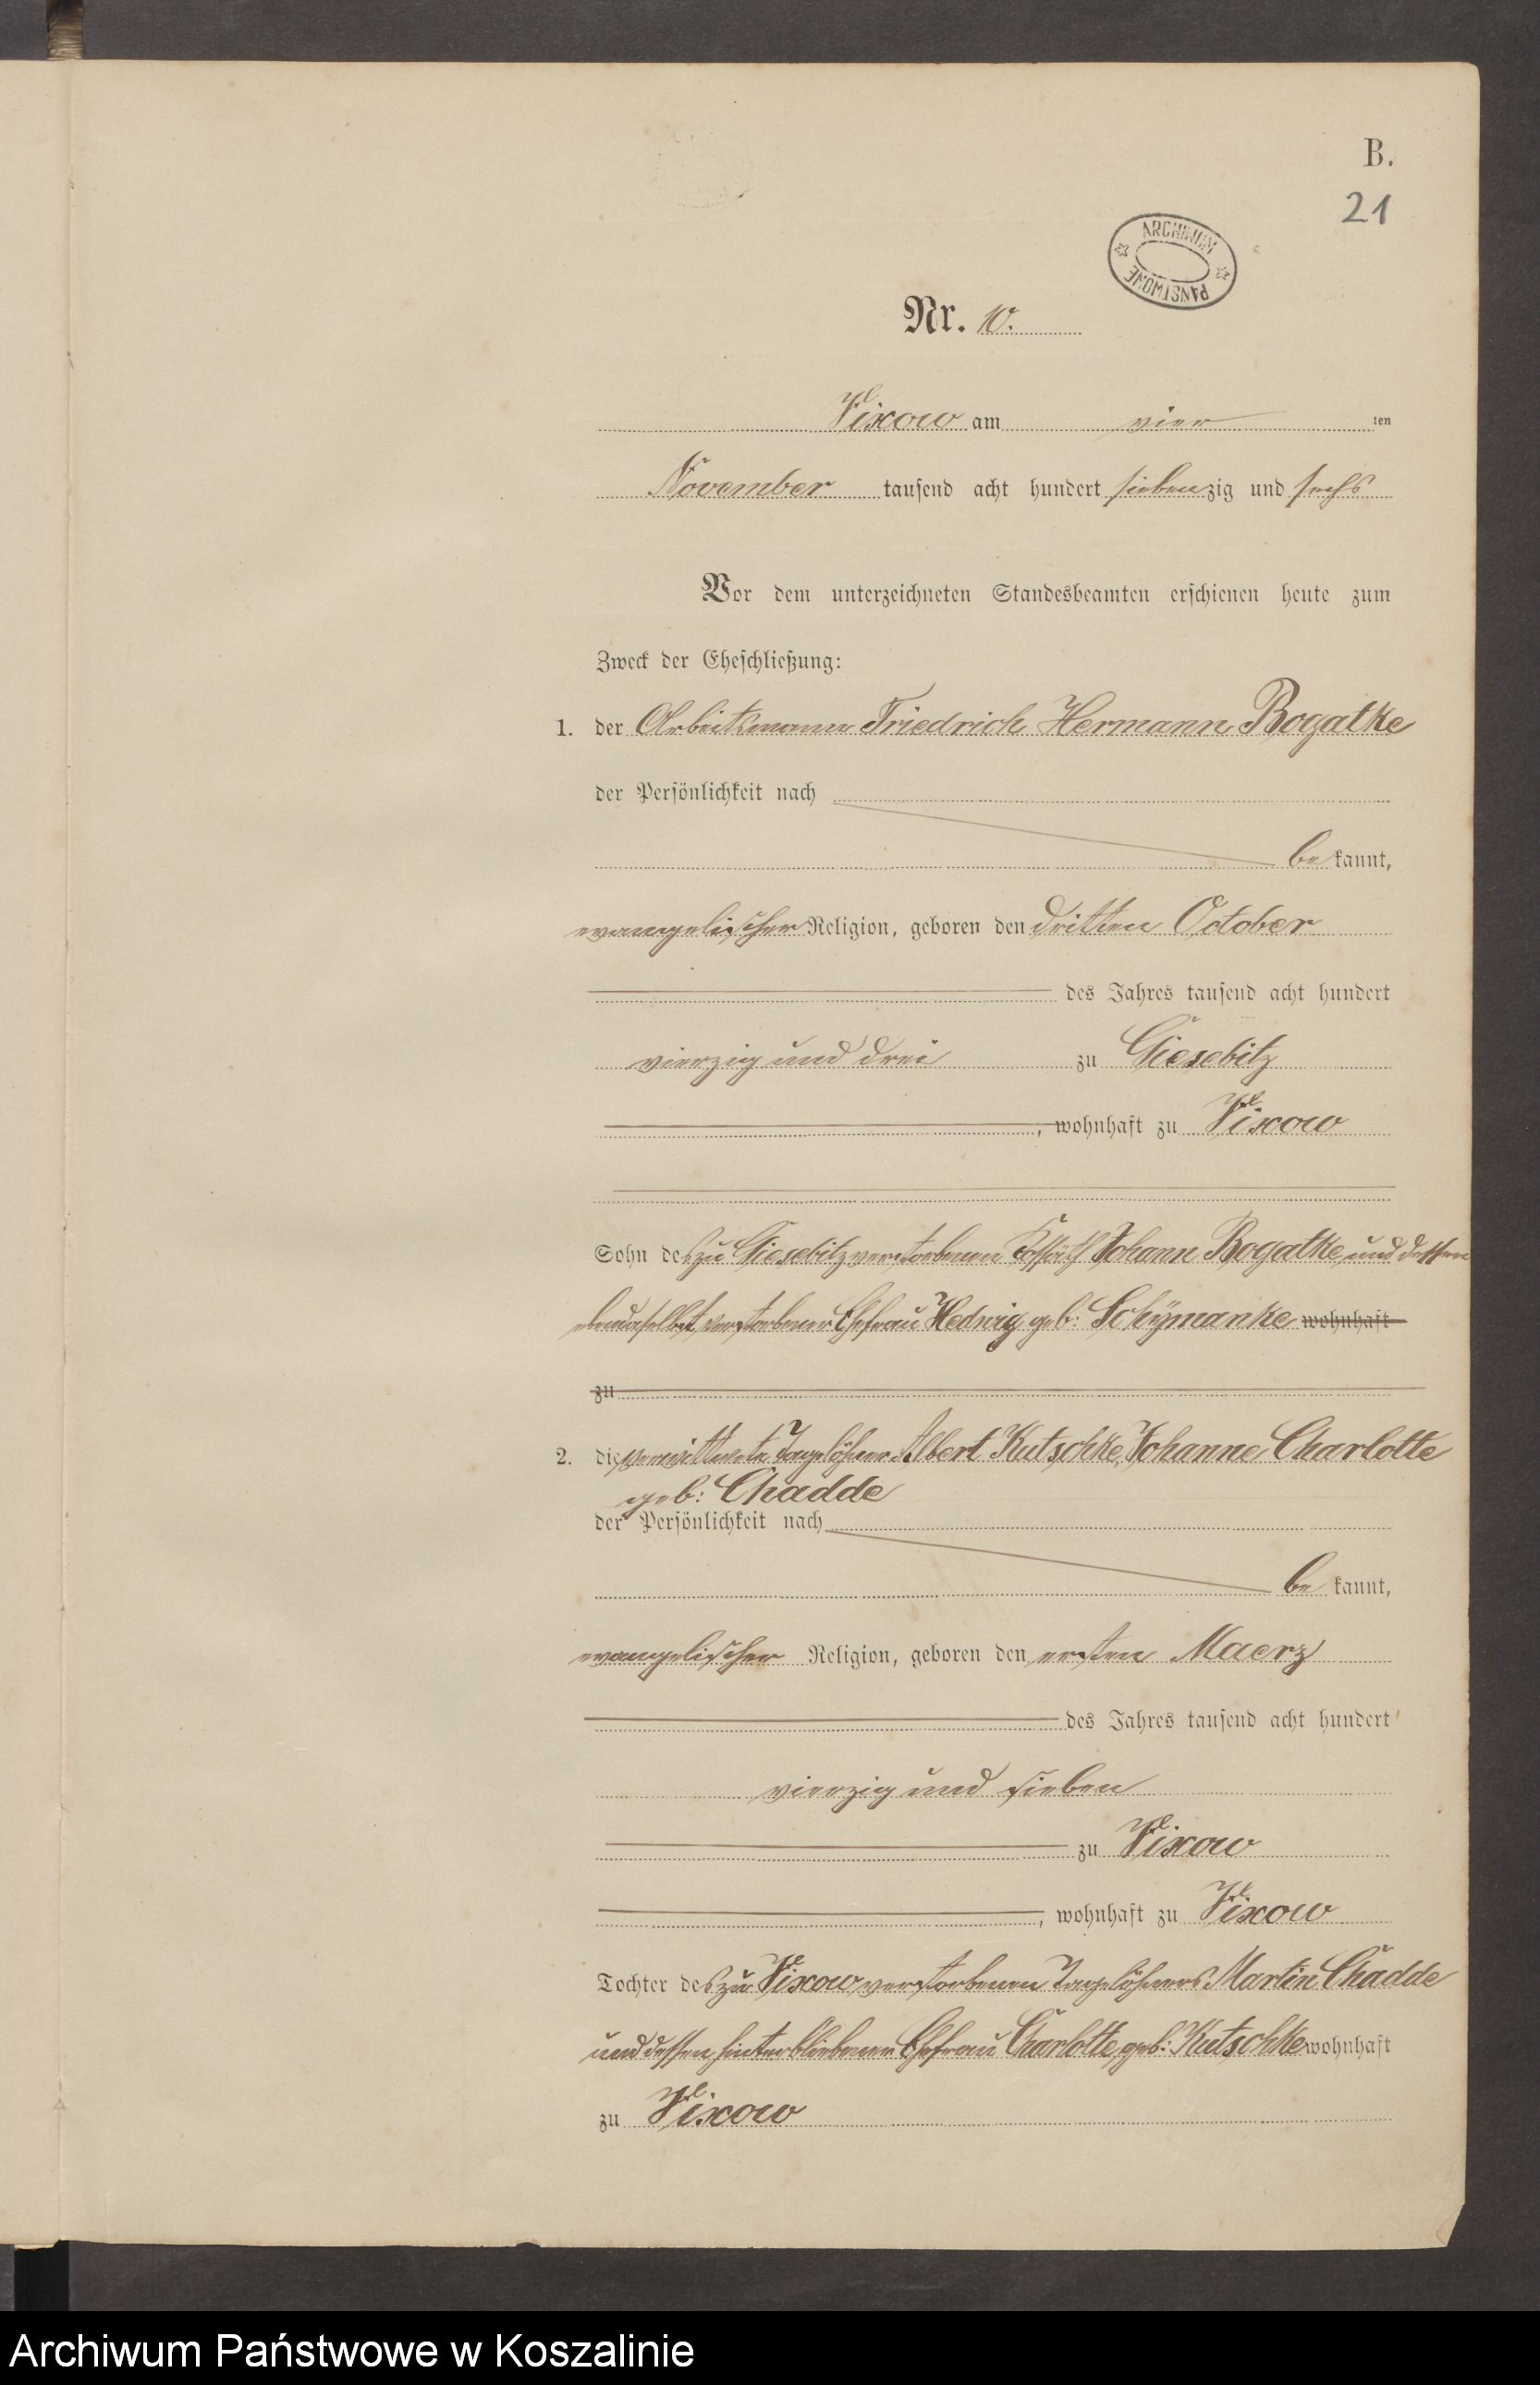 B.
21
ARCHIWUM
PAŃSTWOWE
Nr. 10.
Vixow am vier ten
November tausend acht hundert siebenzig und sechs
Vor dem unterzeichneten Standesbeamten erschienen heute zum
Zweck der Eheschließung:
1. der Arbeitsmann Friedrich Hermann Bogatke
der Persönlichkeit nach
be kannt,
evangelischer Religion, geboren den dritten October
des Jahres tausend acht hundert
vierzig und drei zu Giesebitz
, wohnhaft zu Vixow
Sohn des zu Giesebitz verstorbenen Kossäth Johann Bogatke und dessen
ebendaselbst verstorbener Ehefrau Hedwig geb: Schÿmanke wohnhaft
zu
2. die verwittwete Tagelöhner Albert Kutschke, Johanne Charlotte
geb: Chadde
der Persönlichkeit nach
be kannt,
evangelischer Religion, geboren den ersten Maerz
des Jahres tausend acht hundert
vierzig und sieben
zu Vixow
, wohnhaft zu Vixow
Tochter des zu Vixow verstorbenen Tagelöhners Martin Chadde
und dessen hinterbliebener Ehefrau Charlotte, geb: Kutschke wohnhaft
zu Vixow
Archiwum Państwowe w Koszalinie